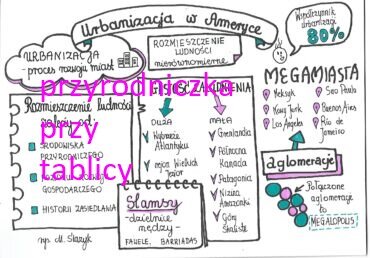 Urbanizacja w Ameryce
Współczynnik
urbanizacji
80%
URBANIZACJA
proces rozwoju miast
ROZMIESZCZENIE
LUDNOŚCI
nierównomierne
MEGAMIASTA
Meksyk
Nowy Jork
Los Angeles
Sao Paulo
Buenos Aires
Rio de
Janeiro
Rozmieszczenie ludności
zależy od:
ŚRODOWISKA
PRZYRODNICZEGO
GOSPODARCZEGO
HISTORII ZASIEDLANIA
GĘSTOŚĆ ZALUDNIENIA
DUŻA
Wybrzeże
Atlantyku
rejon Wielkich
Jezior
MAŁA
Grenlandia
Północna
Kanada
Patagonia
Nizina
Amazonki
Góry
Skaliste
Slamsy
-dzielnice
nędzy-
FAWELE, BARRIADAS
aglomeracje
Połączone
aglomeracje
to
MEGALOPOLIS
przyrodniczka
przy
tablicy